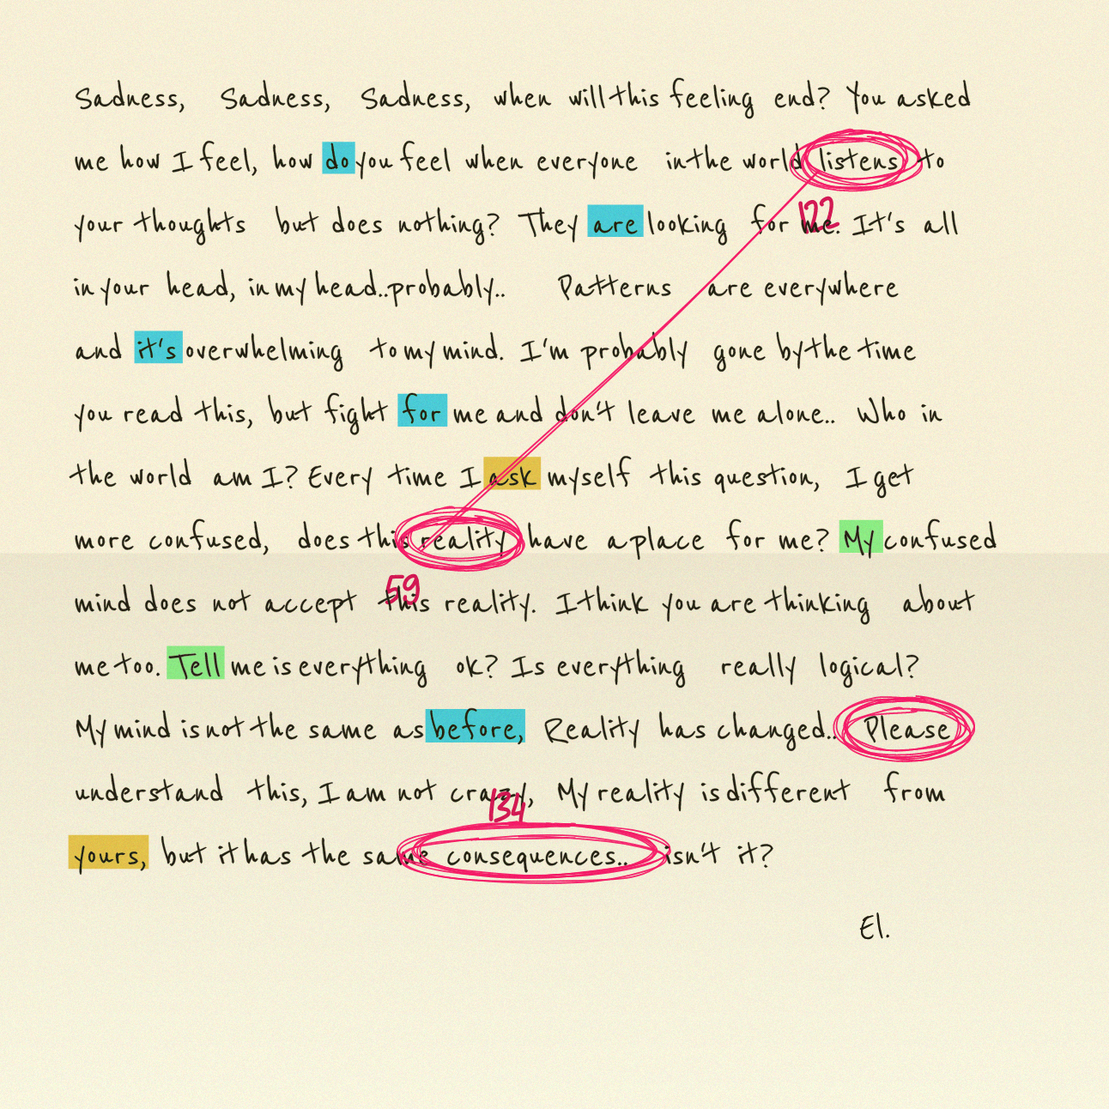 Sadness, Sadness, Sadness, when will this feeling end? You asked
me how I feel, how do you feel when everyone in the world listens to
122
your thoughts but does nothing? They are looking for me. It's all
in your head, in my head..probably.. Patterns are everywhere
and it's overwhelming to my mind. I'm probably gone by the time
you read this, but fight for me and don't leave me alone.. Who in
the world am I? Every time I ask myself this question, I get
more confused, does this reality have a place for me? My confused
59
mind does not accept this reality. I think you are thinking about
me too. Tell me is everything ok? Is everything really logical?
My mind is not the same as before, Reality has changed.. Please
understand this, I am not crazy, My reality is different from
134
yours, but it has the same consequences.. isn't it?
El.